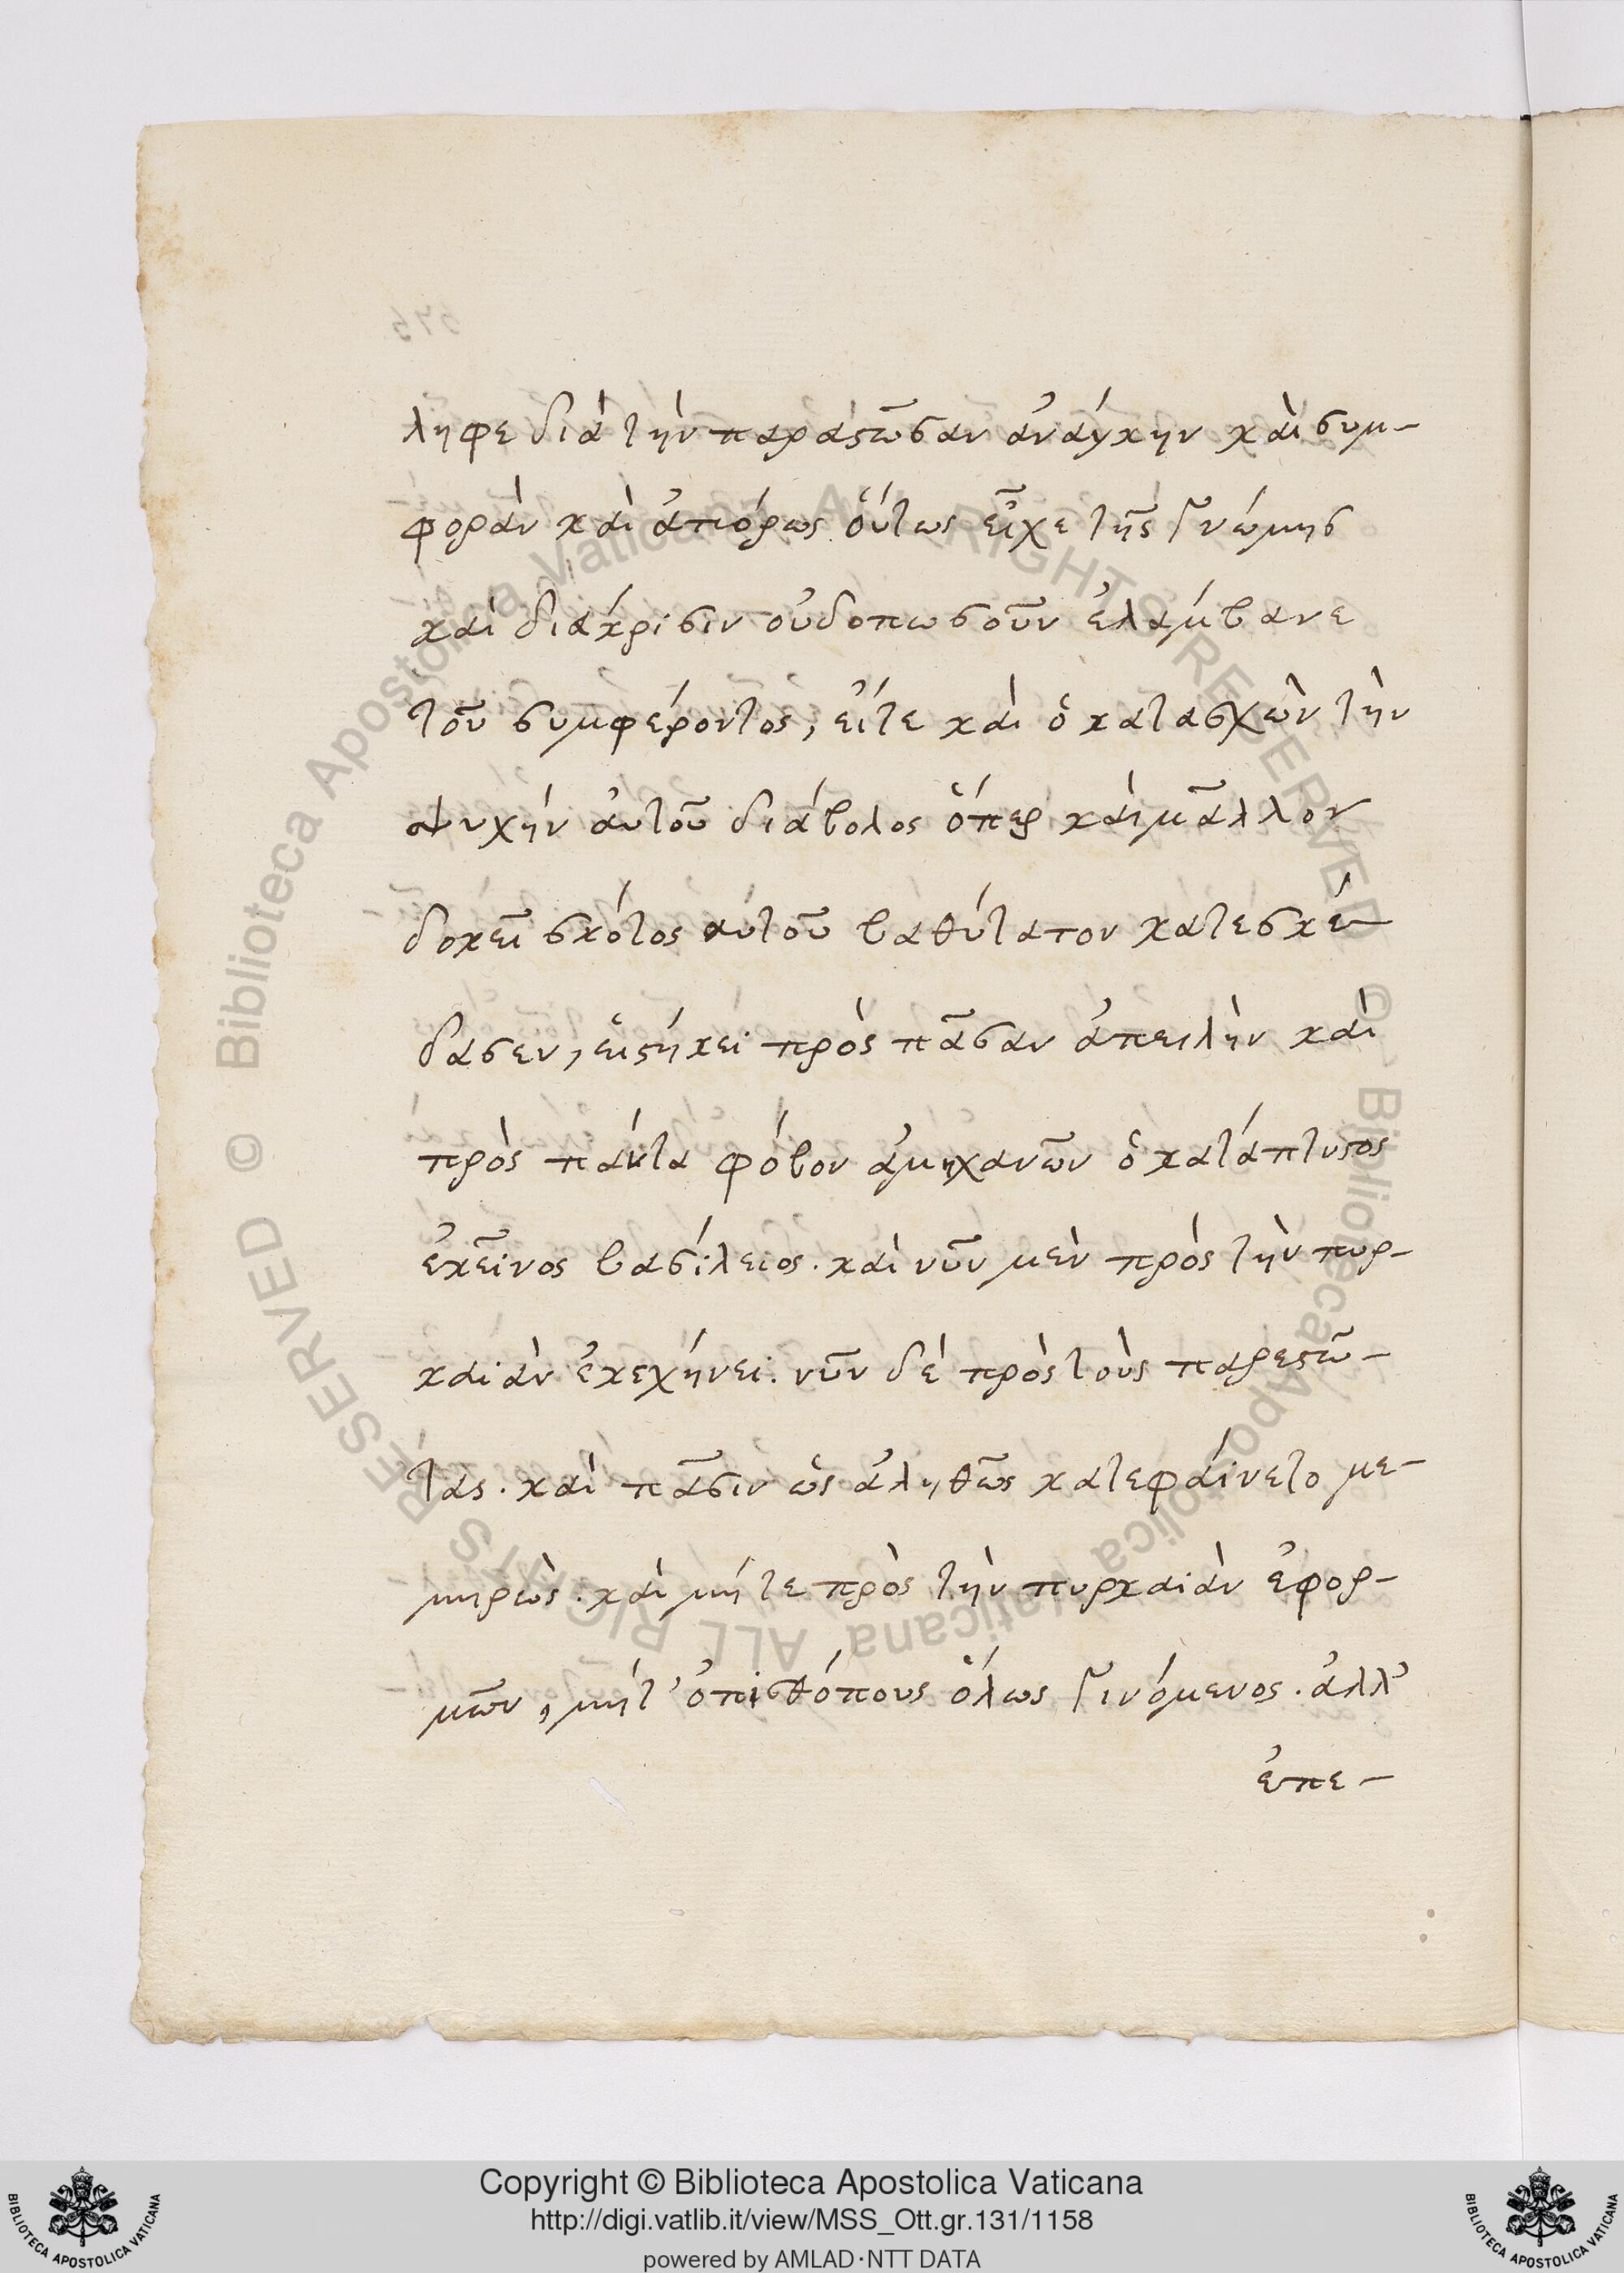 ληφε διὰ τὴν παραστῶσαν ἀνάγκην καὶ συμ-
φορὰν καὶ ἀπόρως οὕτως εἶχε τῆς γνώμης
καὶ διάκρισιν οὐδοπωσοῦν ἐλάμβανε
τοῦ συμφέροντος, εἴτε καὶ ὁ κατασχὼν τὴν
ψυχὴν αὐτοῦ διάβολος ὅπερ καὶ μᾶλλον
δοκεῖ σκότος αὐτοῦ βαθύτατον κατεσκέ-
δασεν, εἱστήκει πρὸς πᾶσαν ἀπειλὴν καὶ
πρὸς πάντα φόβον ἀμηχανῶν ὁ κατάπτυστος
ἐκεῖνος βασίλειος. καὶ νῦν μὲν πρὸς τὴν πυρ-
καιὰν ἐκεχήνει. νῦν δὲ πρὸς τοὺς παρεστῶ-
τας. καὶ πᾶσιν ὡς ἀληθῶς κατεφαίνετο με-
μηρὼς. καὶ μήτε πρὸς τὴν πυρκαιὰν ἐφορ-
μῶν, μήτ' ὀπισθόπους ὅλως γινόμενος. ἀλλ'
ἐπε-
Copyright © Biblioteca Apostolica Vaticana
http://digi.vatlib.it/view/MSS_Ott.gr.131/1158
powered by AMLAD·NTT DATA
BIBLIOTECA APOSTOLICA VATICANA
BIBLIOTECA APOSTOLICA VATICANA
© Biblioteca Apostolica Vaticana ALL RIGHTS RESERVED
© Biblioteca Apostolica Vaticana ALL RIGHTS RESERVED